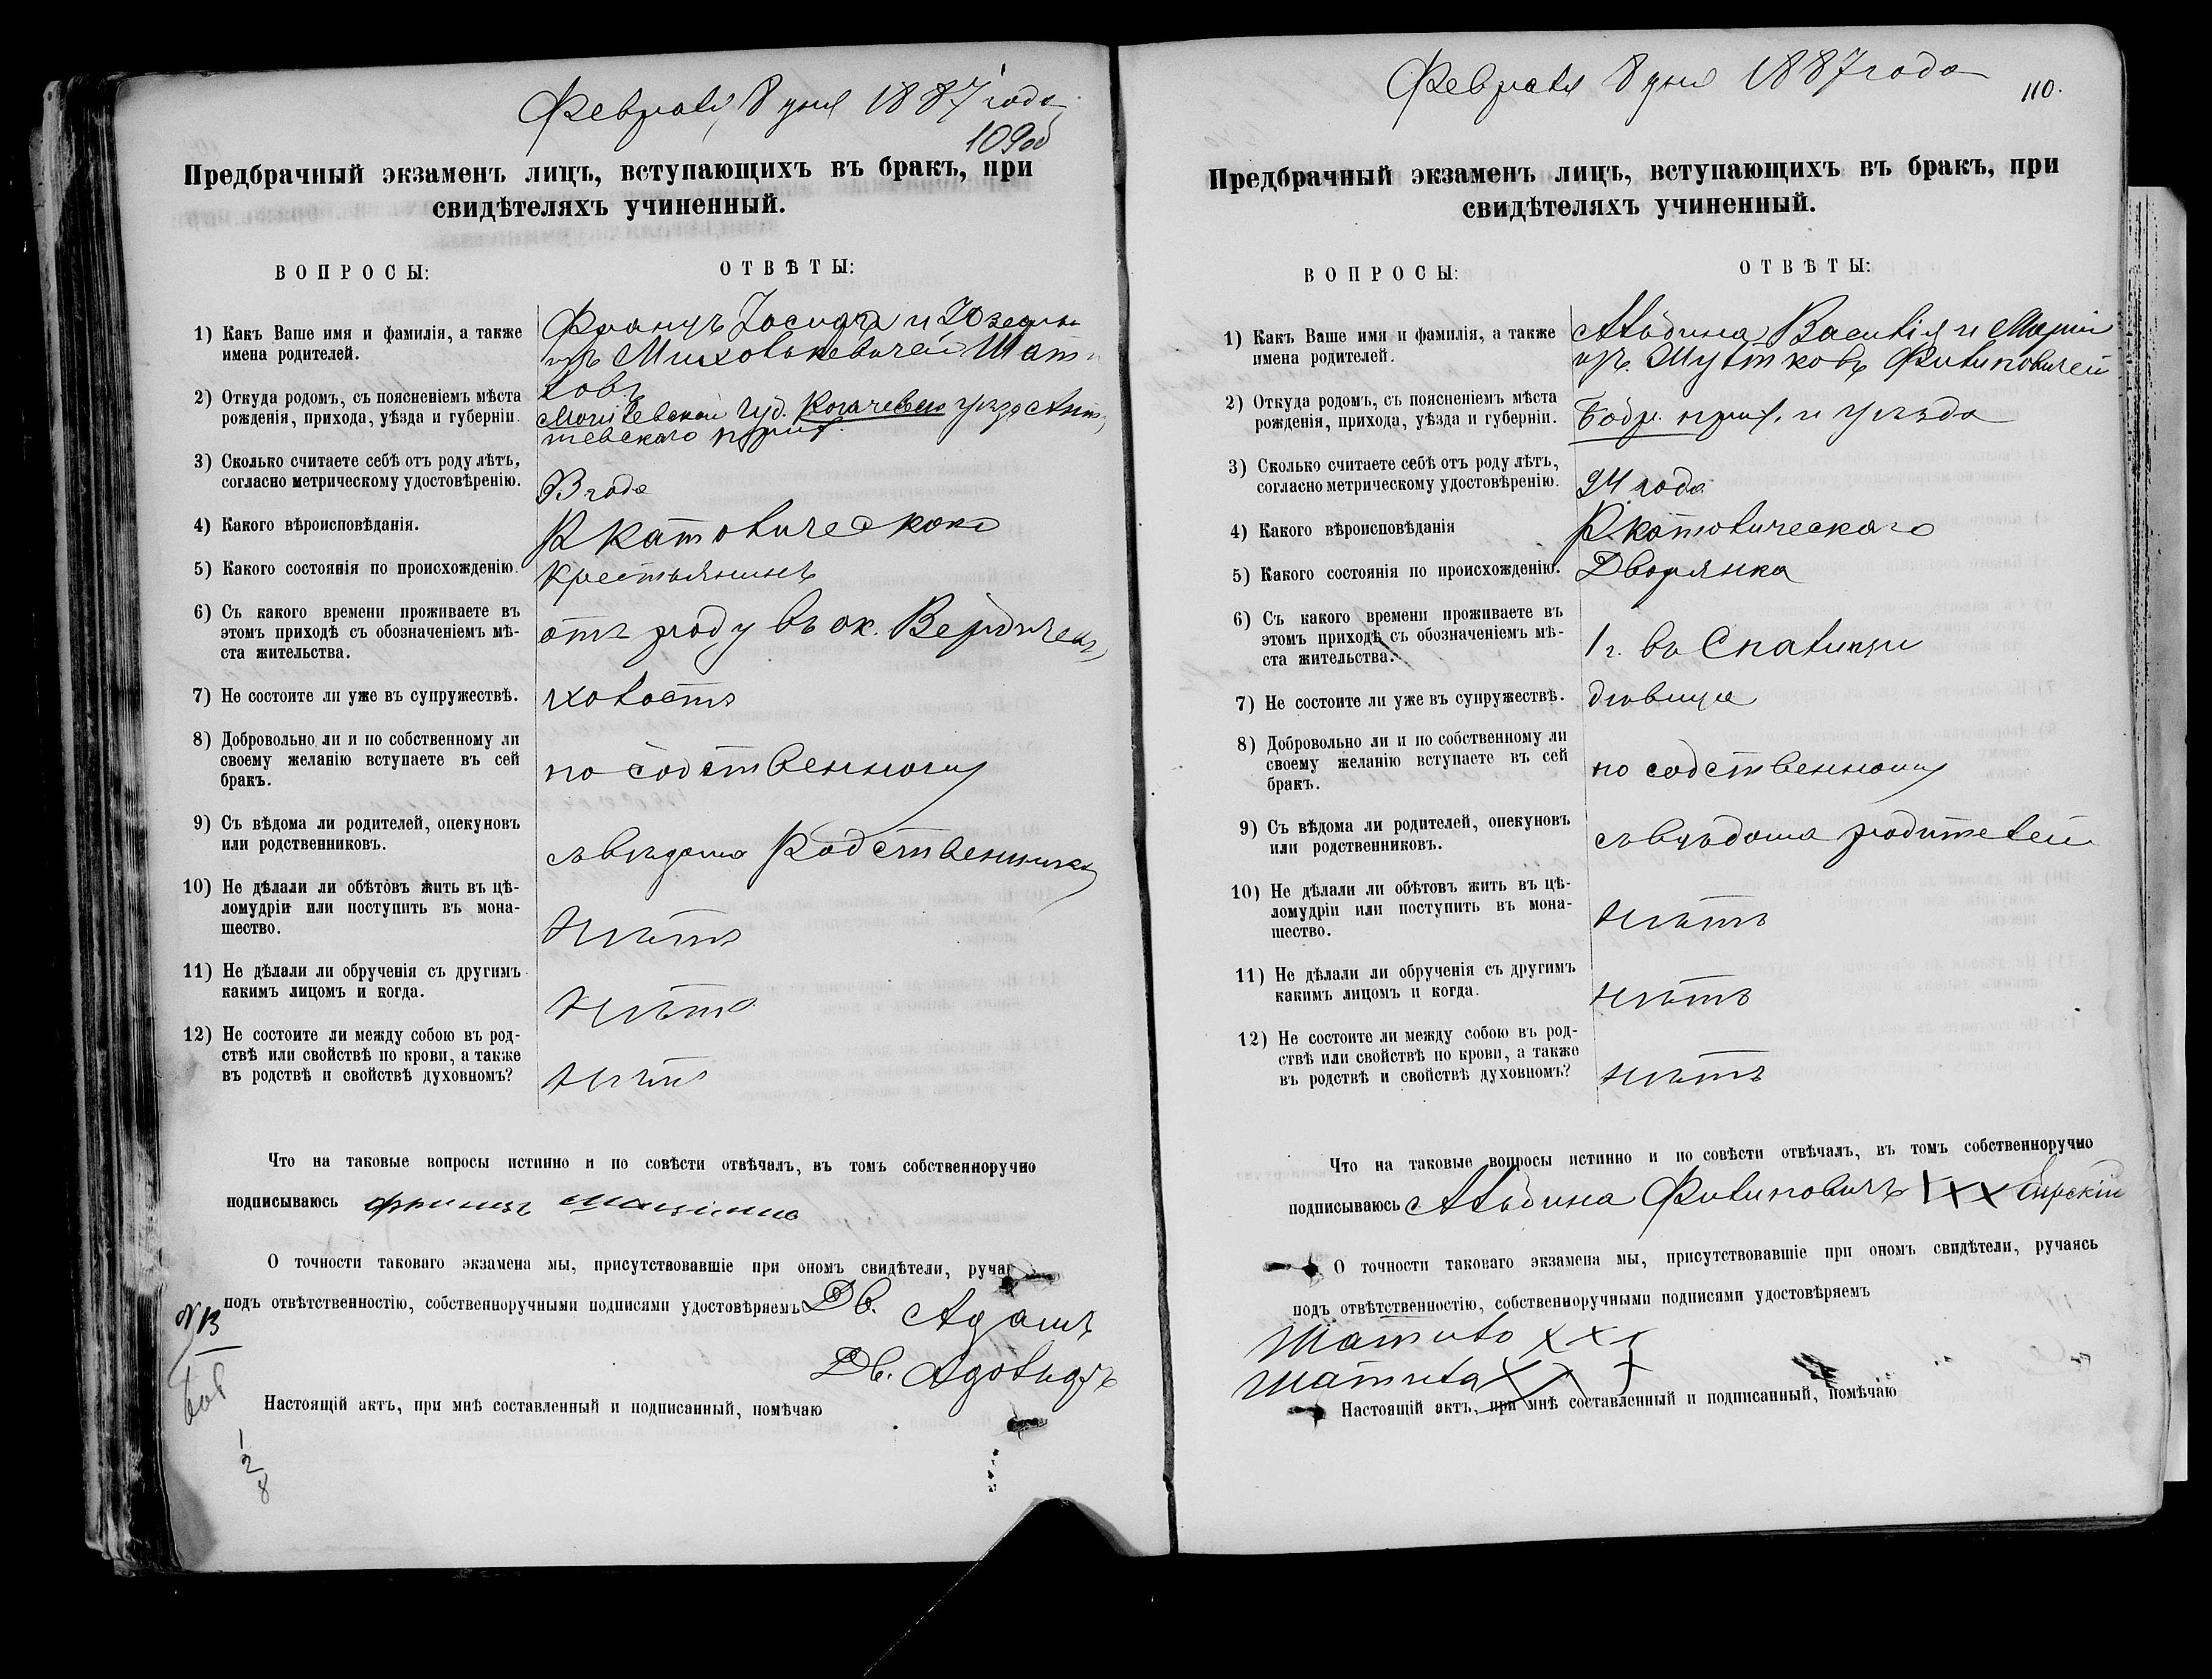 Февраля 8 дня 1887 года
109об
Предбрачный экзаменъ лицъ, вступающихъ въ бракъ, при
свидѣтеляхъ учиненный.
ВОПРОСЫ:
ОТВѢТЫ:
1) Какъ Ваше имя и фамилія, а также
имена родителей.
Францъ Іосифа и Юзефы
изъ
2) Откуда родомъ, съ поясненіемъ мѣста
рожденія, прихода, уѣзда и губерніи.
Могилевской губ. Рогачевскаго уѣзда
прих.
3) Сколько считаете себѣ отъ роду лѣтъ,
согласно метрическому удостовѣренію.
года
4) Какого вѣроисповѣданія.
Р Католическаго
5) Какого состоянія по происхожденію.
Крестьянинъ
6) Съ какого времени проживаете въ
этомъ приходѣ съ обозначеніемъ мѣ-
ста жительства.
отъ роду въ ок.
7) Не состоите ли уже въ супружествѣ.
холостъ
8) Добровольно ли и по собственному ли
своему желанію вступаете въ сей
бракъ.
по собственному
9) Съ вѣдома ли родителей, опекуновъ
или родственниковъ.
съ вѣдома
10) Не дѣлали ли обѣтовъ жить въ цѣ-
ломудріи или поступить въ мона-
шество.
Нѣтъ
11) Не дѣлали ли обрученія съ другимъ
какимъ лицомъ и когда.
Нѣтъ
12) Не состоите ли между собою въ род-
ствѣ или свойствѣ по крови, а также
въ родствѣ и свойствѣ духовномъ?
Нѣтъ
Что на таковые вопросы истинно и по совѣсти отвѣчалъ, въ томъ собственноручно
подписываюсь
О точности таковаго экзамена мы, присутствовавшіе при ономъ свидѣтели,
подъ отвѣтственностію, собственноручными подписями удостовѣряемъ Дв. Адамъ
Дв. Адольфъ
Настоящій актъ, при мнѣ составленный и подписанный, помѣчаю
Февраля 8 дня 1887 года
110.
Предбрачный экзаменъ лицъ, вступающихъ въ бракъ, при
свидѣтеляхъ учиненный.
ВОПРОСЫ:
ОТВѢТЫ:
1) Какъ Ваше имя и фамилія, а также
имена родителей.
Альбина Василія и Маріи
изъ Филиповичей
2) Откуда родомъ, съ поясненіемъ мѣста
рожденія, прихода, уѣзда и губерніи.
Бобр. прих. и уѣзда
3) Сколько считаете себѣ отъ роду лѣтъ,
согласно метрическому удостовѣренію.
24 года
4) Какого вѣроисповѣданія
Р. Католическаго
5) Какого состоянія по происхожденію.
Дворянка
6) Съ какого времени проживаете въ
этомъ приходѣ съ обозначеніемъ мѣ-
ста жительства.
1 г. въ
7) Не состоите ли уже въ супружествѣ.
дѣвица
8) Добровольно ли и по собственному ли
своему желанію вступаете въ сей
бракъ.
по собственному
9) Съ вѣдома ли родителей, опекуновъ
или родственниковъ.
съ вѣдома родителей
10) Не дѣлали ли обѣтовъ жить въ цѣ-
ломудріи или поступить въ мона-
шество.
Нѣтъ
11) Не дѣлали ли обрученія съ другимъ
какимъ лицомъ и когда.
Нѣтъ
12) Не состоите ли между собою въ род-
ствѣ или свойствѣ по крови, а также
въ родствѣ и свойствѣ духовномъ?
Нѣтъ
Что на таковые вопросы истинно и по совѣсти отвѣчалъ, въ томъ собственноручно
подписываюсь Альбина Филиповичъ XXX
О точности таковаго экзамена мы, присутствовавшіе при ономъ свидѣтели, ручаясь
подъ отвѣтственностію, собственноручными подписями удостовѣряемъ
Шатило XXX
Шатило XXX
Настоящій актъ, при мнѣ составленный и подписанный, помѣчаю